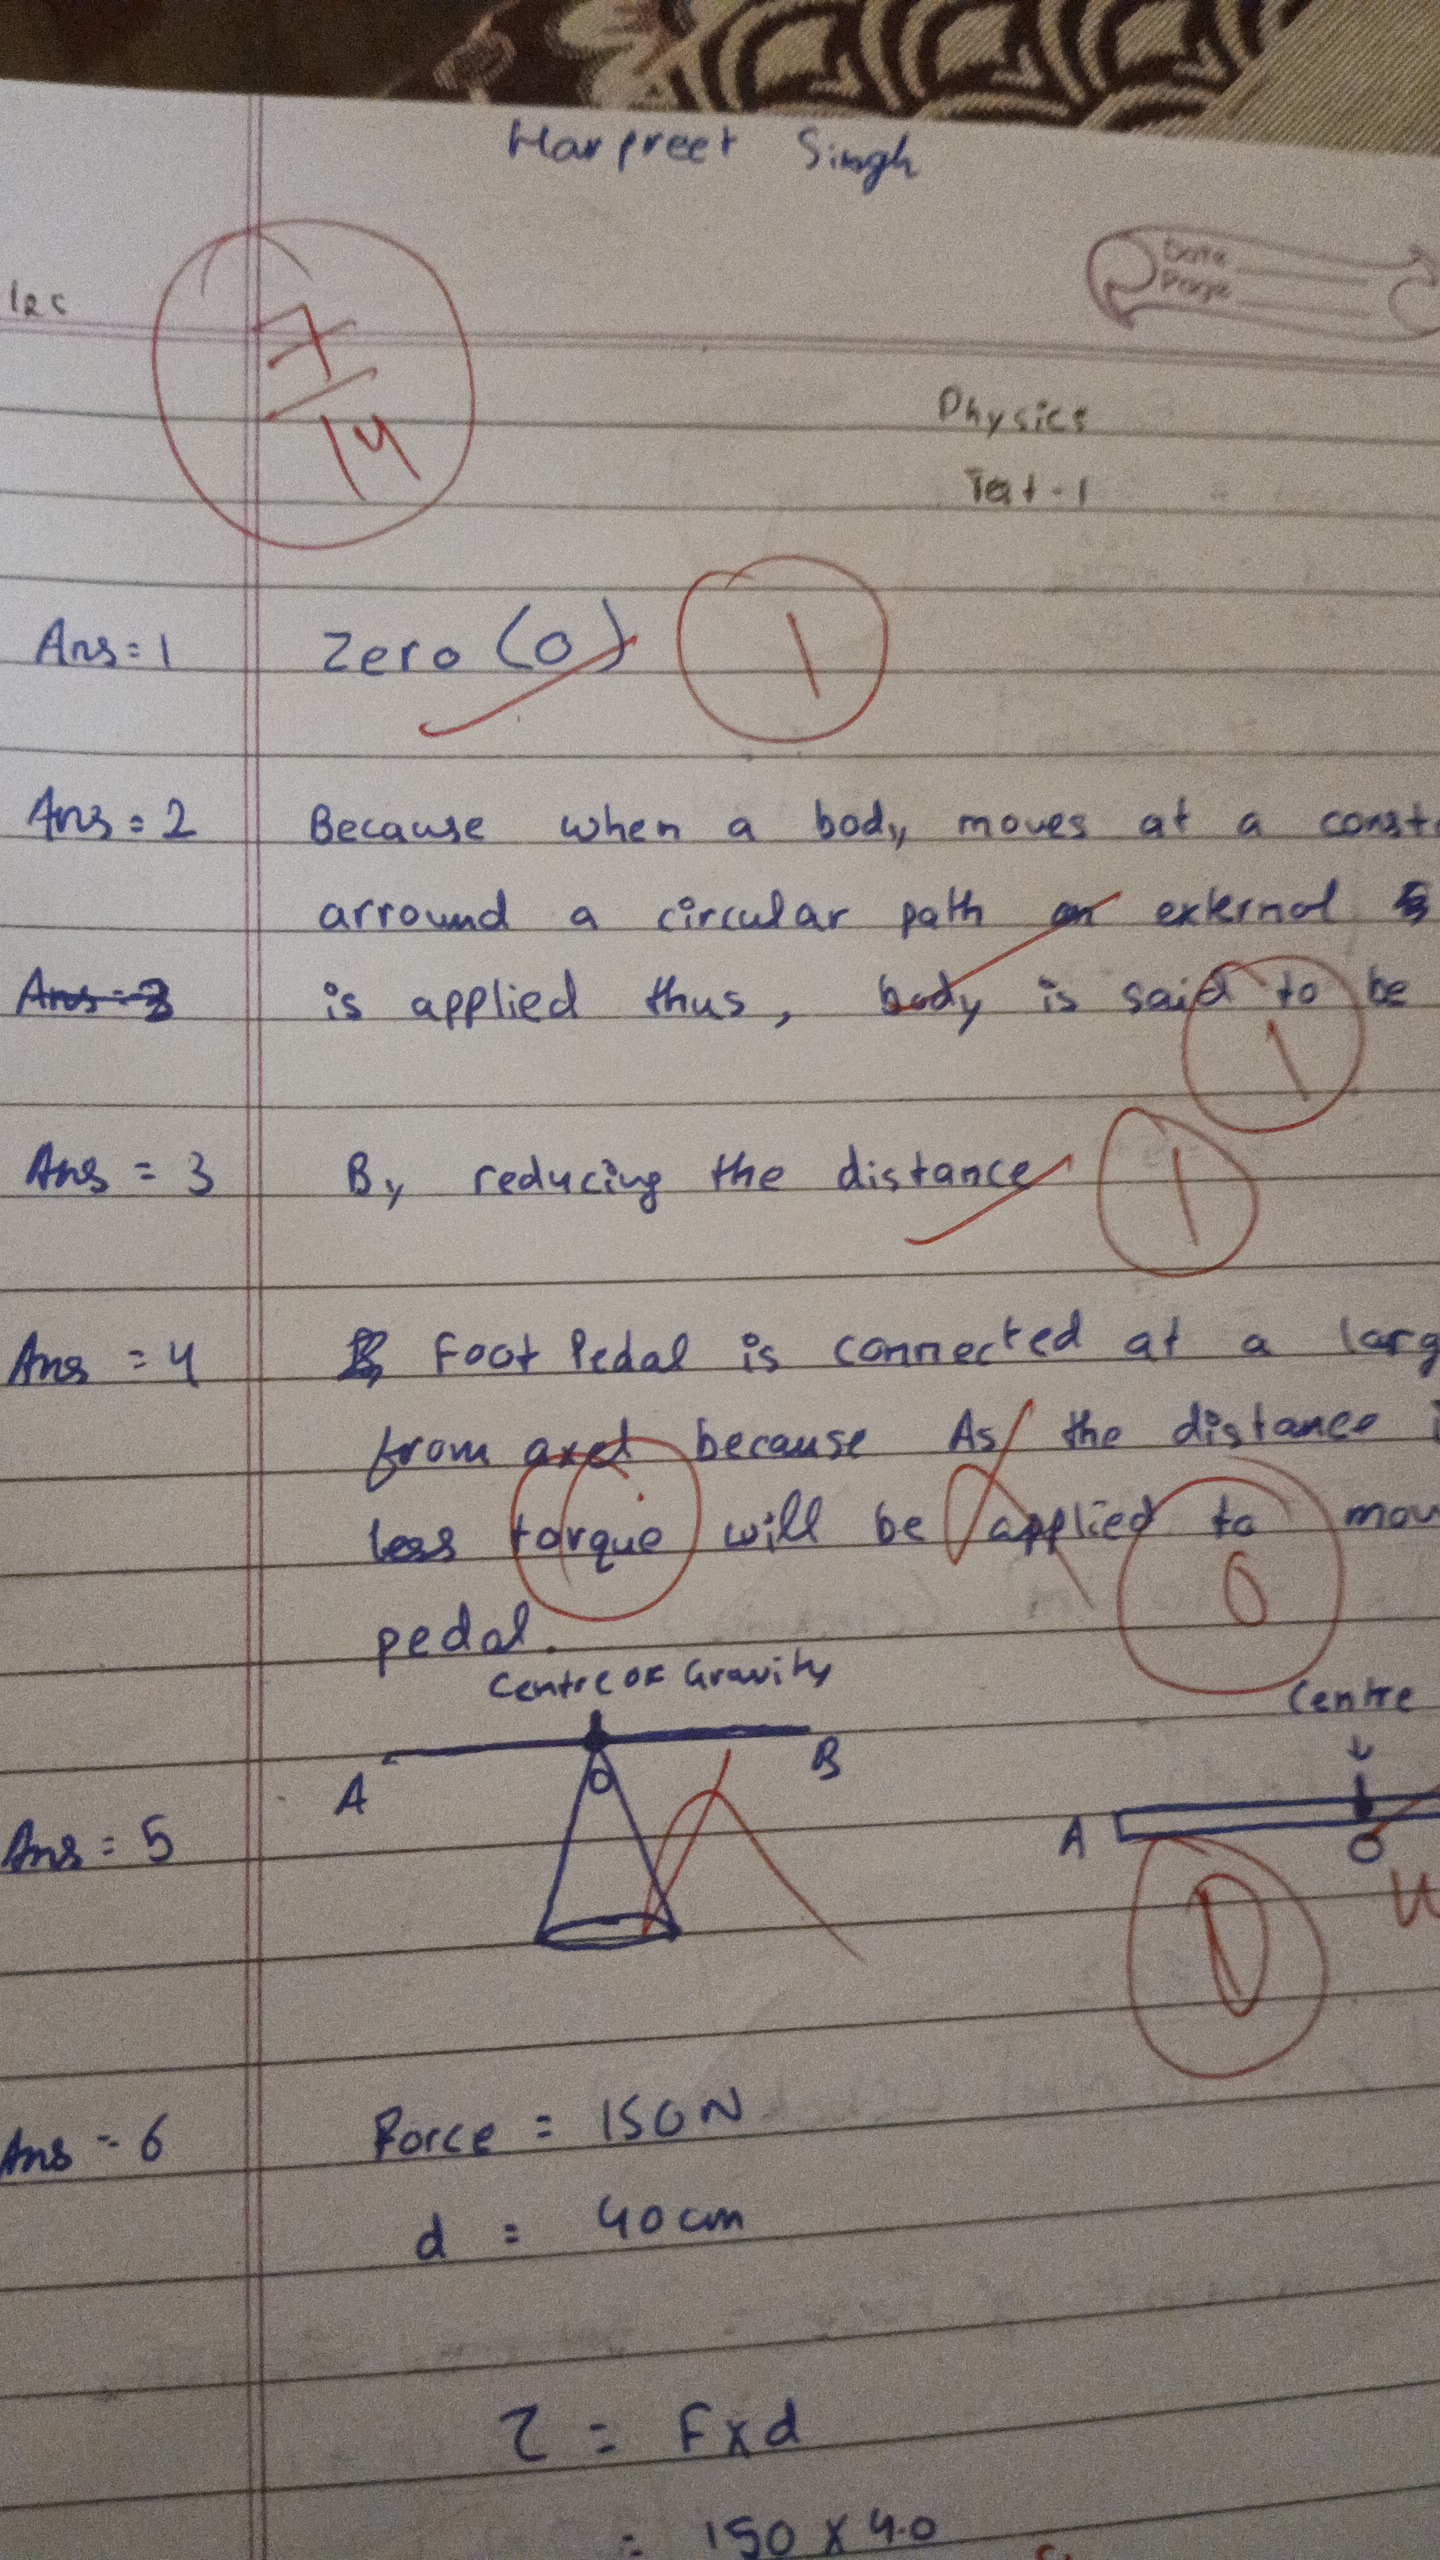 Harpreet Singh
Date
Page
7/14
Physics
Test-1
Ans=1 Zero (0) 1
Ans=2 Because when a body moves at a const
arround a circular path an external
Ans=3 is applied thus, body is said to be
1
Ans = 3 By reducing the distance 1
Ans = 4 Foot Pedal is connected at a larg
from axel because As the distance i
less torque will be applied to mov
0
pedal.
Centre of Gravity
Centre
A B
A O
O
Ans = 5
Ans - 6 Force = 150N
d = 40cm
τ = F x d
= 150 x 40